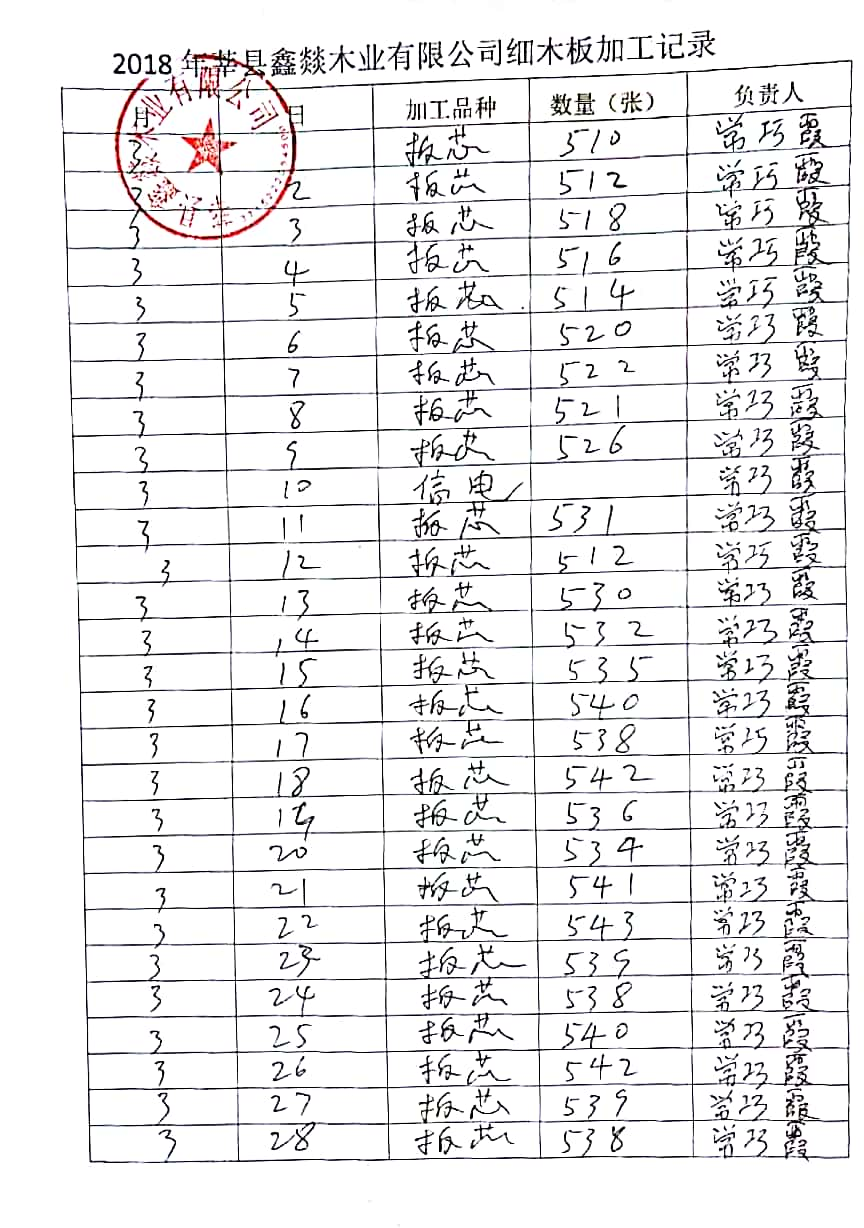 2018年莘县鑫燚木业有限公司细木板加工记录
月 日 加工品种 数量（张） 负责人
3 板芯 510 常巧霞
3 2 板芯 512 常巧霞
3 3 板芯 518 常巧霞
3 4 板芯 516 常巧霞
3 5 板芯 514 常巧霞
3 6 板芯 520 常巧霞
3 7 板芯 522 常巧霞
3 8 板芯 521 常巧霞
3 9 板芯 526 常巧霞
3 10 信电 常巧霞
3 11 板芯 531 常巧霞
3 12 板芯 512 常巧霞
3 13 板芯 530 常巧霞
3 14 板芯 532 常巧霞
3 15 板芯 535 常巧霞
3 16 板芯 540 常巧霞
3 17 板芯 538 常巧霞
3 18 板芯 542 常巧霞
3 19 板芯 536 常巧霞
3 20 板芯 534 常巧霞
3 21 板芯 541 常巧霞
3 22 板芯 543 常巧霞
3 23 板芯 539 常巧霞
3 24 板芯 538 常巧霞
3 25 板芯 540 常巧霞
3 26 板芯 542 常巧霞
3 27 板芯 539 常巧霞
3 28 板芯 538 常巧霞